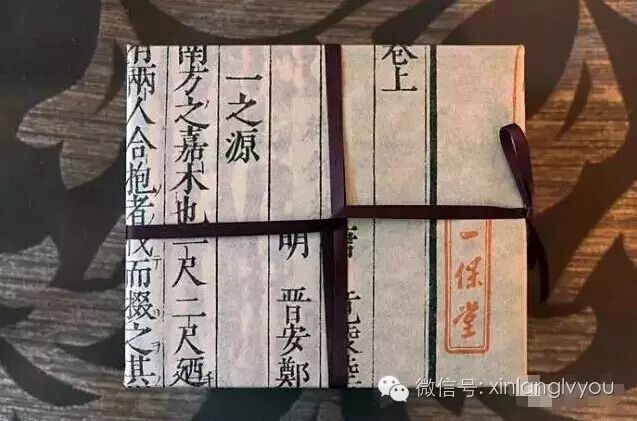 一保堂
卷上
明 晋安鄭
一之源
南方之嘉木也一尺二尺廼
兩人合抱者伐而掇之其
微信号: xinlanglvyou